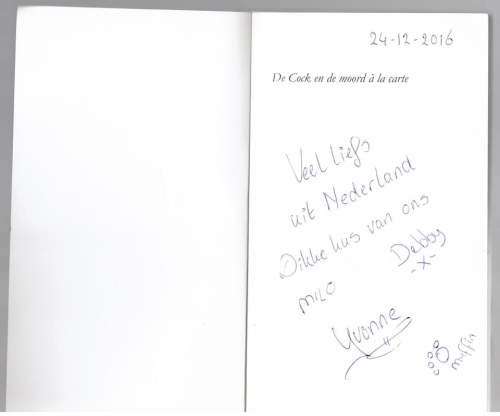 24-12-2016
De Cock en de moord à la carte
Veel liefs
uit Nederland
Dikke kus van ons
Debby
-x-
MILO
Yvonne
muffin